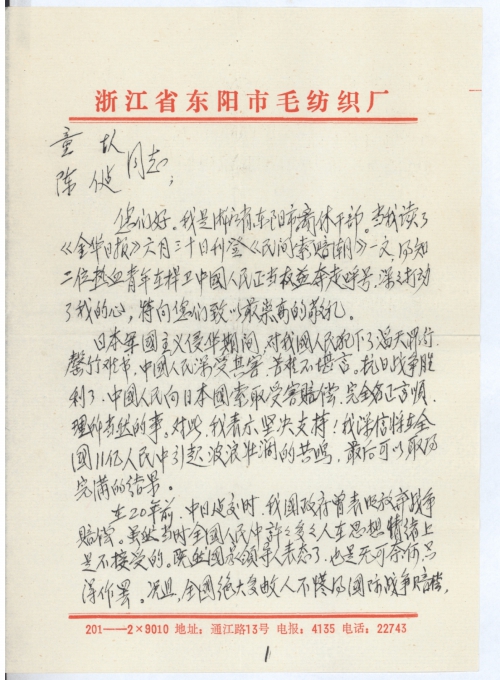 浙江省东阳市毛纺织厂
童
陈
同志:
您们好。我是浙江省东阳市离休干部。当我读了
《金华日报》六月三十日刊登《民间索赔潮》一文,得知
二位热血青年在捍卫中国人民正当权益奔走呼号,深深打动
了我的心,特向您们致以最崇高的敬礼。
日本军国主义侵华期间,对我国人民犯下了滔天罪行,
罄竹难书,中国人民深受其害,苦楚不堪言。抗日战争胜
利了,中国人民向日本国索取受害赔偿,完全名正言顺,
理所当然的事。对此,我表示坚决支持!我深信能在全
国11亿人民中引起波浪壮阔的共鸣,最后可以取得
完满的结果。
在20年前,中日建交时,我国政府曾表明放弃战争
赔偿。虽然当时全国人民中许许多多人在思想情绪上
是不接受的,既然国家领导人表态了,也是无可奈何,只
得作罢。况且,全国绝大多数人不懂得国际战争赔偿,
201——2×9010 地址:通江路13号 电报:4135 电话:22743
1